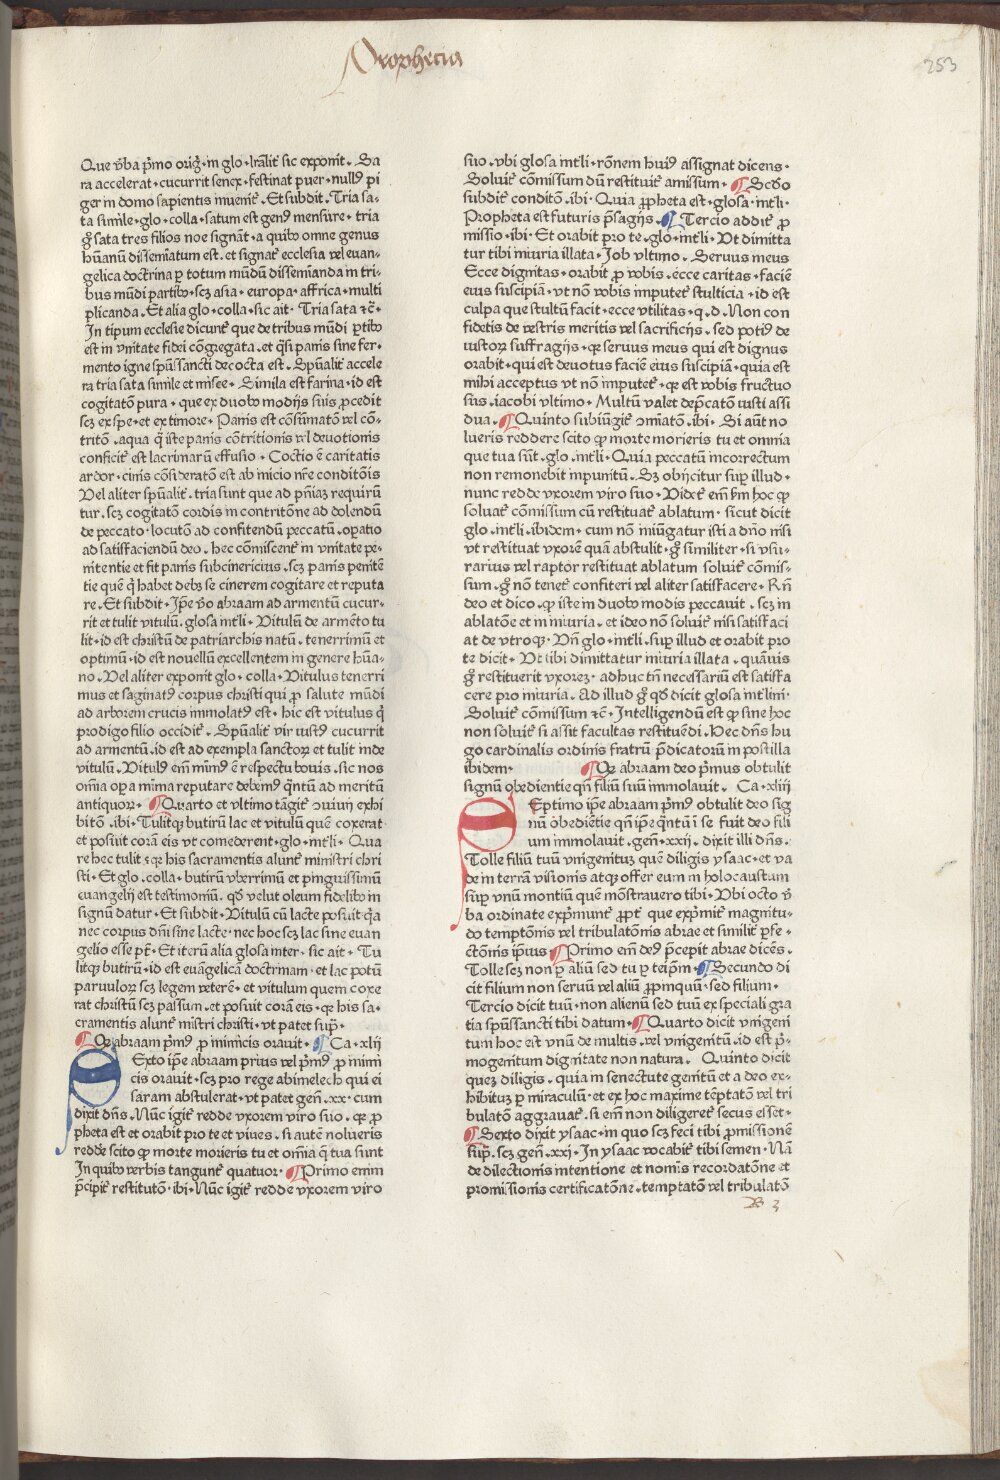 Prophecia
253
Que v̄ba p̄mo oriḡ·in glo·lrãlit̄ sic exponit̄. Sa
ra accelerat·cucurrit senex·festinat puer·null⁹ pi
ger in domo sapientis inuenit̄. Et subdit. Tria sa-
ta simile·glo·colla·satum est gen⁹ mensure·tria
g̊ sata tres filios noe signãt·a quib⁹ omne genus
hũanũ disseminatum est. et signat̄ ecclesia vel euan-
gelica doctrina p totum mũdũ disseminanda in tri-
bus mũdi partib⁹·scz asia·europa·affrica·multi
plicanda. Et alia glo·colla·sic ait· Tria sata ⁊c̄·
In tipum ecclesie dicunt̄ que de tribus mũdi p̱tib⁹
est in vnitate fidei cõgregata. et q̃si panis sine fer-
mento igne spũssancti decocta est. Spũalit̄ accele
ra tria sata simile et misce. Simila est farina·id est
cogitatõ pura·que ex duob⁹ modijs suis p̱cedit
scz ex spe·et ex timore· Panis est cõsũmatõ vel cõ-
tritõ.aqua q̃ iste panis cõtritionis vel deuotionis
conficit̄ est lacrimarũ effusio· Coctio ē caritatis
ardor·cinis cõsideratõ est ab inicio nr̄e conditõis
Vel aliter spũalit̄.tria sunt que ad pñiaʒ requirũ
tur.scz cogitatõ cordis in contritõne ad dolendũ
de peccato·locutõ ad confitendũ peccatũ.opatio
ad satisfaciendũ deo.hec cõmiscent̄ in vnitate pe-
nitentie et fit panis subcinericius.scz panis penitē
tie quē q̃ habet debʒ se cinerem cogitare et reputa
re. Et subdit·Ip̄e v̊o abraam ad armentũ cucur-
rit et tulit vitulũ.glosa int̄li· Vitulũ de armēto tu
lit·id est christũ de patriarchis natũ.tenerrimũ et
optimũ·id est nouellũ excellentem in genere hũa-
no. Vel aliter exponit glo·colla·Vitulus tenerri
mus et saginat⁹ corpus christi qui p̱ salute mũdi
ad arborem crucis immolat⁹ est·hic est vitulus q̃
prodigo filio occidit̄. Spũalit̄ vir iust⁹ cucurrit
ad armentũ.id est ad exempla sanctorꝝ et tulit inde
vitulũ.Vitul⁹ em̄ minim⁹ ē respectu bouis.sic nos
om̄ia op̱a mima reputare debem⁹ q̃ntũ ad meritũ
antiquorꝝ· Quarto et vltimo tãgit̄ ↄuiuij exhi
bitõ.ibi·Tulitqʒ butirũ lac et vitulũ quē coxerat·
et posuit corã eis vt comederent·glo·int̄li· Qua
re hec tulit ꝛ qʒ his sacramentis alunt̄ ministri chri
sti·Et glo.colla·butirũ vberrimũ et pinguissimũ
euangelij est testimoniũ. q⁹ velut oleum fidelib⁹ in
signũ datur·Et subdit·Vitulũ cũ lacte posuit·q̃a
nec corpus dñi sine lacte·nec hoc scz lac sine euan
gelio esse pt̄·Et iterũ alia glosa inter·sic ait· Tu
litqʒ butirũ·id est euãgelicã doctrinam·et lac potũ
paruulorꝝ scz legem veterē·et vitulum quem coxe
rat christũ scz passum.et posuit corã eis·qʒ his sa-
cramentis alunt̄ mistri christi·vt patet sup̄·
Qʒ abraam p̄m⁹ p̱ inimicis orauit· Ca·xlij
Sexto ip̄e abraam prius vel p̄m⁹ p̱ inimi
cis orauit·scz pro rege abimelech qui ei
saram abstulerat·vt patet geñ·xx·cum
dixit dñs.Nũc igit̄ redde vxorem viro suo.qʒ p̱
pheta est et orabit pro te et viues.si autē nolueris
redde scito qʒ morte morieris tu et om̄ia q̃ tua sunt
In quib⁹ verbis tangunt̄ quatuor· Primo enim
p̄cipit̄ restitutõ·ibi·Nũc igit̄ redde vxorem viro
suo.vbi glosa int̄li·rõnem hui⁹ assignat dicens·
Soluit̄ cõmissum dũ restituit̄ amissum· Scd̊o
subdit̄ conditõ.ibi·Quia p̱pheta est·glosa·int̄li·
Propheta est futuris p̄sagijs. Tercio addit̄ p̱
missio·ibi·Et orabit pro te.glo·int̄li·Vt dimitta
tur tibi iniuria illata·Job vltimo.Seruus meus
Ecce dignitas·orabit p̱ vobis.ecce caritas·faciē
eius suscipiã·vt nõ vobis imputet̄ stulticia·id est
culpa que stultũ facit·ecce vtilitas·q.d.Non con
fidetis de vestris meritis vel sacrificijs.sed poti⁹ de
iustorꝝ suffragijs·qʒ seruus meus qui est dignus
orabit·qui est deuotus faciē eius suscipiã·quia est
mihi acceptus vt nõ imputet̄·qʒ est vobis fructuo
sus.iacobi vltimo·Multũ valet dep̄catõ iusti assi
dua. Quinto subiũgit̄ ↄminatõ.ibi·Si aũt no
lueris reddere scito qʒ morte morieris tu et omnia
que tua sũt.glo.int̄li·Quia peccatũ incorrectum
non remonebit inpunitũ.Sʒ obijcitur sup̱ illud·
nunc redde vxorem viro suo·Videt̄ em̄ ẜm hoc qʒ
soluat̄ cõmissum cũ restituat̄ ablatum·sicut dicit
glo.int̄li·ibidem·cum nõ iniũgatur isti a dño nisi
vt restituat vxorē quã abstulit·g̊ similiter·si vsu-
rarius vel raptor restituat ablatum soluit̄ cõmis-
sum.g̊ nõ tenet̄ confiteri vel aliter satisfacere·Rñ
deo et dico.qʒ iste in duob⁹ modis peccauit.scz in
ablatõe et in iniuria.et ideo nõ soluit̄ nisi satisfaci
at de vtroqʒ.Vñ glo·int̄li.sup̱ illud et orabit pro
te dicit·Vt tibi dimittatur iniuria illata.quãuis
g̊ restituerit vxoreʒ·adhuc tñ necessariũ est satisfa
cere pro iniuria·Ad illud g̊ q⁹ dicit glosa int̄lini·
Soluit̄ cõmissum ⁊c̄·Intelligendũ est qʒ sine hoc
non soluit̄ si assit facultas restituēdi·Hec dñs hu
go cardinalis ordinis fratrũ p̄dicatorũ in postilla
ibidem· Qʒ abraam deo p̄mus obtulit
signũ obedientie qñ filiũ suũ immolauit. Ca·xliij
Septimo ip̄e abraam p̄m⁹ obtulit deo sig
nũ obediētie qñ ip̄e q̃ntũ ī se fuit deo fili
um immolauit.geñ·xxij.dixit illi dñs.
Tolle filiũ tuũ vnigenituʒ quē diligis ysaac·et va
de in terrã visionis atqʒ offer eum in holocaustum
sup̱ vnũ montiũ quē mõstrauero tibi·Vbi octo v̄
ba ordinate exp̄munt̄ p̱pt̄ que exp̄mit̄ magnitu-
do temptõnis vel tribulatõnis abrae et similit̄ p̱fe-
ctõnis ipsius Primo em̄ de⁹ p̄cepit abrae dicēs.
Tolle scz non p̱ aliũ sed tu p̱ teip̄m· Secundo di
cit filium non seruũ vel aliũ p̱pinquũ·sed filium·
Tercio dicit tuũ·non alienũ sed tuũ ex speciali gra
tia spũssancti tibi datum· Quarto dicit vnigeni
tum hoc est vnũ de multis.vel vnigenitũ.id est p̄-
mogenitum dignitate non natura. Quinto dicit
queʒ diligis.quia in senectute genitũ et a deo ex-
hibituʒ p̱ miraculũ·et ex hoc maxime tēptatõ vel tri
bulatõ aggrauat̄.si em̄ non diligeret̄ secus esset·
Sexto dixit ysaac·in quo scz feci tibi p̱missionē
sup̄.scz geñ.xxi·In ysaac vocabit̄ tibi semen·Nã
de dilectionis intentione et nomīs recordatõne et
promissionis certificatõne·temptatõ vel tribulatõ
B 3